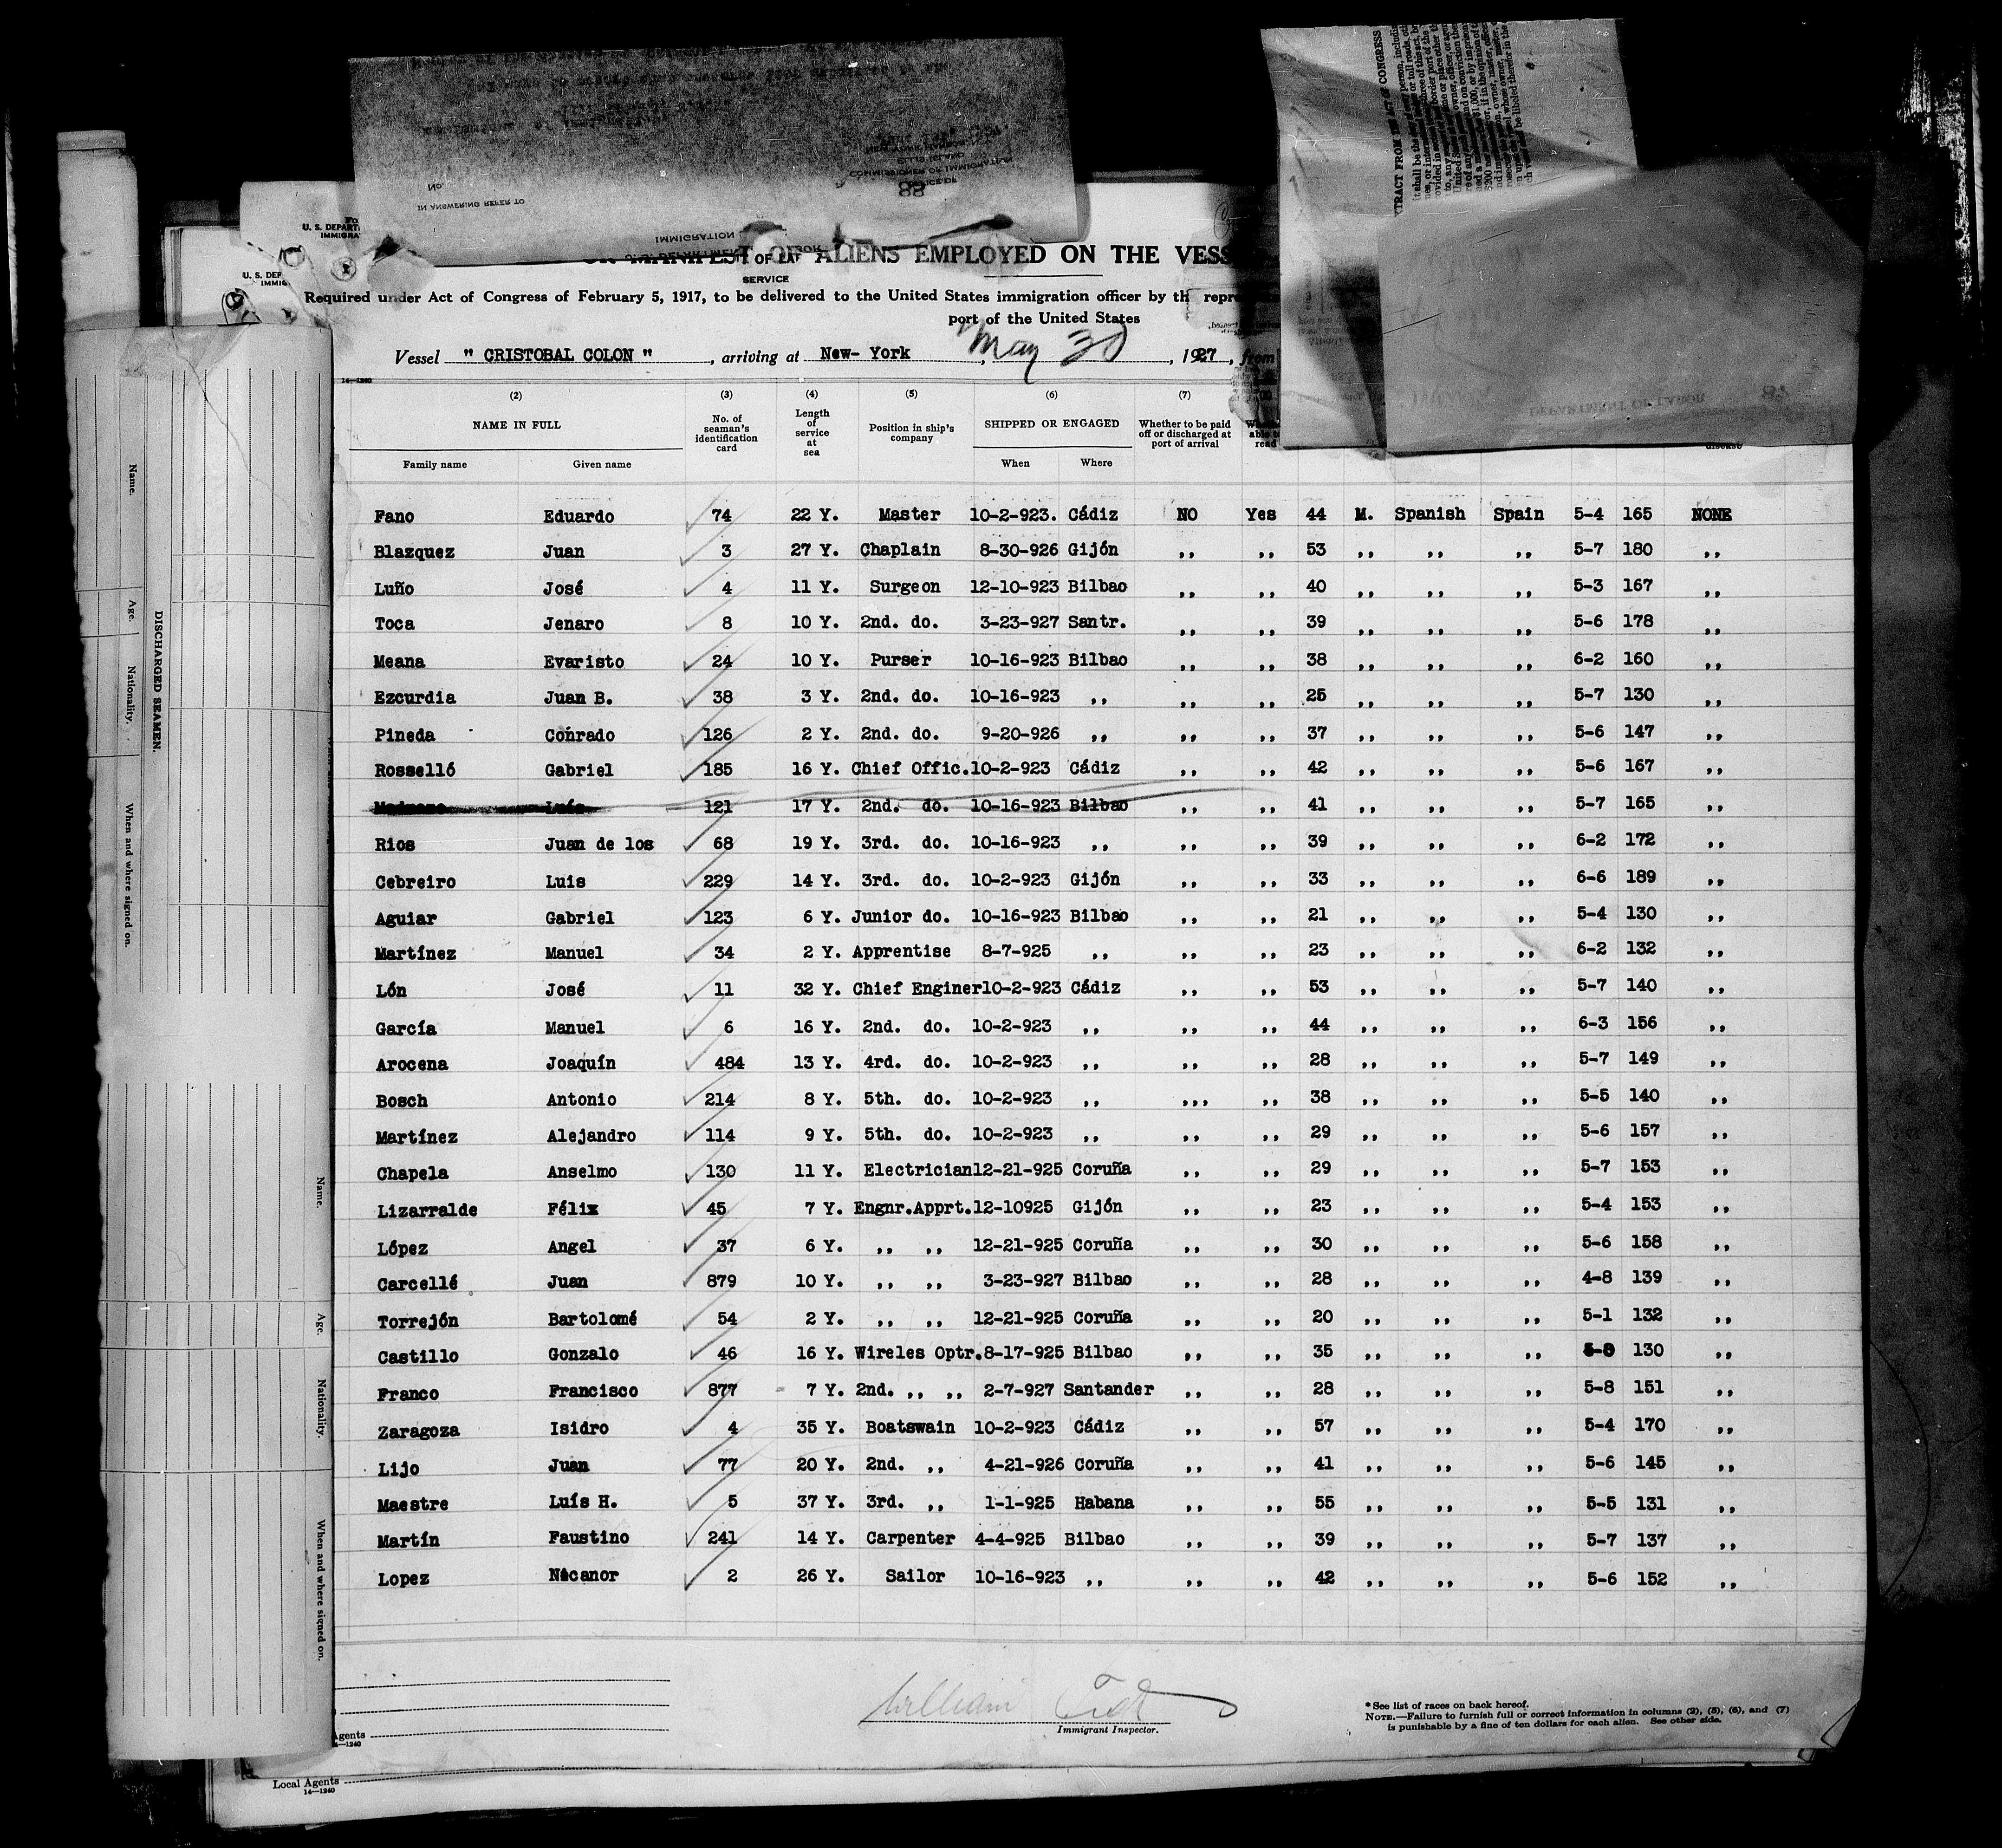 IN ANSWERING REFER TO
No.
OFFICE OF
COMMISSIONER OF IMMIGRATION
ELLIS ISLAND
88
IMMIGRATION
EXTRACT FROM THE ACT OF CONGRESS
DEPARTMENT OF LABOR
U. S. DEPARTM
IMMIGRA
U. S. DEP
IMMIG
MANIFEST OF ALIENS EMPLOYED ON THE VESS
SERVICE
Required under Act of Congress of February 5, 1917, to be delivered to the United States immigration officer by th repre
port of the United States
Vessel " CRISTOBAL COLON " , arriving at New- York , May 30 , 1927 , from
14—1240
(2) (3) (4) (5) (6) (7)
NAME IN FULL No. of seaman's identification card Length of service at sea Position in ship's company SHIPPED OR ENGAGED Whether to be paid off or discharged at port of arrival Whether able to read
Family name Given name When Where disease
Fano Eduardo 74 22 Y. Master 10-2-923. Cádiz NO Yes 44 M. Spanish Spain 5-4 165 NONE
Blazquez Juan 3 27 Y. Chaplain 8-30-926 Gijón ,, ,, 53 ,, ,, ,, 5-7 180 ,,
Luño José 4 11 Y. Surgeon 12-10-923 Bilbao ,, ,, 40 ,, ,, ,, 5-3 167 ,,
Toca Jenaro 8 10 Y. 2nd. do. 3-23-927 Santr. ,, ,, 39 ,, ,, ,, 5-6 178 ,,
Meana Evaristo 24 10 Y. Purser 10-16-923 Bilbao ,, ,, 38 ,, ,, ,, 6-2 160 ,,
Ezcurdia Juan B. 38 3 Y. 2nd. do. 10-16-923 ,, ,, ,, 25 ,, ,, ,, 5-7 130 ,,
Pineda Conrado 126 2 Y. 2nd. do. 9-20-926 ,, ,, ,, 37 ,, ,, ,, 5-6 147 ,,
Rosselló Gabriel 185 16 Y. Chief Offic. 10-2-923 Cádiz ,, ,, 42 ,, ,, ,, 5-6 167 ,,
Luís 121 17 Y. 2nd. do. 10-16-923 Bilbao ,, ,, 41 ,, ,, ,, 5-7 165 ,,
Rios Juan de los 68 19 Y. 3rd. do. 10-16-923 ,, ,, ,, 39 ,, ,, ,, 6-2 172 ,,
Cebreiro Luis 229 14 Y. 3rd. do. 10-2-923 Gijón ,, ,, 33 ,, ,, ,, 6-6 189 ,,
Aguiar Gabriel 123 6 Y. Junior do. 10-16-923 Bilbao ,, ,, 21 ,, ,, ,, 5-4 130 ,,
Martínez Manuel 34 2 Y. Apprentise 8-7-925 ,, ,, ,, 23 ,, ,, ,, 6-2 132 ,,
Lón José 11 32 Y. Chief Enginer 10-2-923 Cádiz ,, ,, 53 ,, ,, ,, 5-7 140 ,,
García Manuel 6 16 Y. 2nd. do. 10-2-923 ,, ,, ,, 44 ,, ,, ,, 6-3 156 ,,
Arocena Joaquín 484 13 Y. 4rd. do. 10-2-923 ,, ,, ,, 28 ,, ,, ,, 5-7 149 ,,
Bosch Antonio 214 8 Y. 5th. do. 10-2-923 ,, ,,, ,, 38 ,, ,, ,, 5-5 140 ,,
Martínez Alejandro 114 9 Y. 5th. do. 10-2-923 ,, ,, ,, 29 ,, ,, ,, 5-6 157 ,,
Chapela Anselmo 130 11 Y. Electrician 12-21-925 Coruña ,, ,, 29 ,, ,, ,, 5-7 153 ,,
Lizarralde Félix 45 7 Y. Engnr.Apprt. 12-10925 Gijón ,, ,, 23 ,, ,, ,, 5-4 153 ,,
López Angel 37 6 Y. ,, ,, 12-21-925 Coruña ,, ,, 30 ,, ,, ,, 5-6 158 ,,
Carcellé Juan 879 10 Y. ,, ,, 3-23-927 Bilbao ,, ,, 28 ,, ,, ,, 4-8 139 ,,
Torrejón Bartolomé 54 2 Y. ,, ,, 12-21-925 Coruña ,, ,, 20 ,, ,, ,, 5-1 132 ,,
Castillo Gonzalo 46 16 Y. Wireles Optr. 8-17-925 Bilbao ,, ,, 35 ,, ,, ,, 5-8 130 ,,
Franco Francisco 877 7 Y. 2nd. ,, ,, 2-7-927 Santander ,, ,, 28 ,, ,, ,, 5-8 151 ,,
Zaragoza Isidro 4 35 Y. Boatswain 10-2-923 Cádiz ,, ,, 57 ,, ,, ,, 5-4 170 ,,
Lijo Juan 77 20 Y. 2nd. ,, 4-21-926 Coruña ,, ,, 41 ,, ,, ,, 5-6 145 ,,
Maestre Luís H. 5 37 Y. 3rd. ,, 1-1-925 Habana ,, ,, 55 ,, ,, ,, 5-5 131 ,,
Martín Faustino 241 14 Y. Carpenter 4-4-925 Bilbao ,, ,, 39 ,, ,, ,, 5-7 137 ,,
Lopez Nicanor 2 26 Y. Sailor 10-16-923 ,, ,, ,, 42 ,, ,, ,, 5-6 152 ,,
William
Immigrant Inspector.
*See list of races on back hereof.
NOTE.—Failure to furnish full or correct information in columns (2), (5), (6), and (7)
is punishable by a fine of ten dollars for each alien. See other side.
Agents
14—1240
Local Agents
14—1240
DISCHARGED SEAMEN.
Name.
Age.
Nationality.
When and where signed on.
Name.
Age.
Nationality.
When and where signed on.